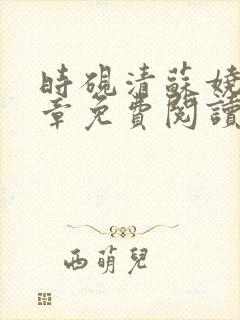 時硯清蘇嬈
章免費閱讀
西萌兒